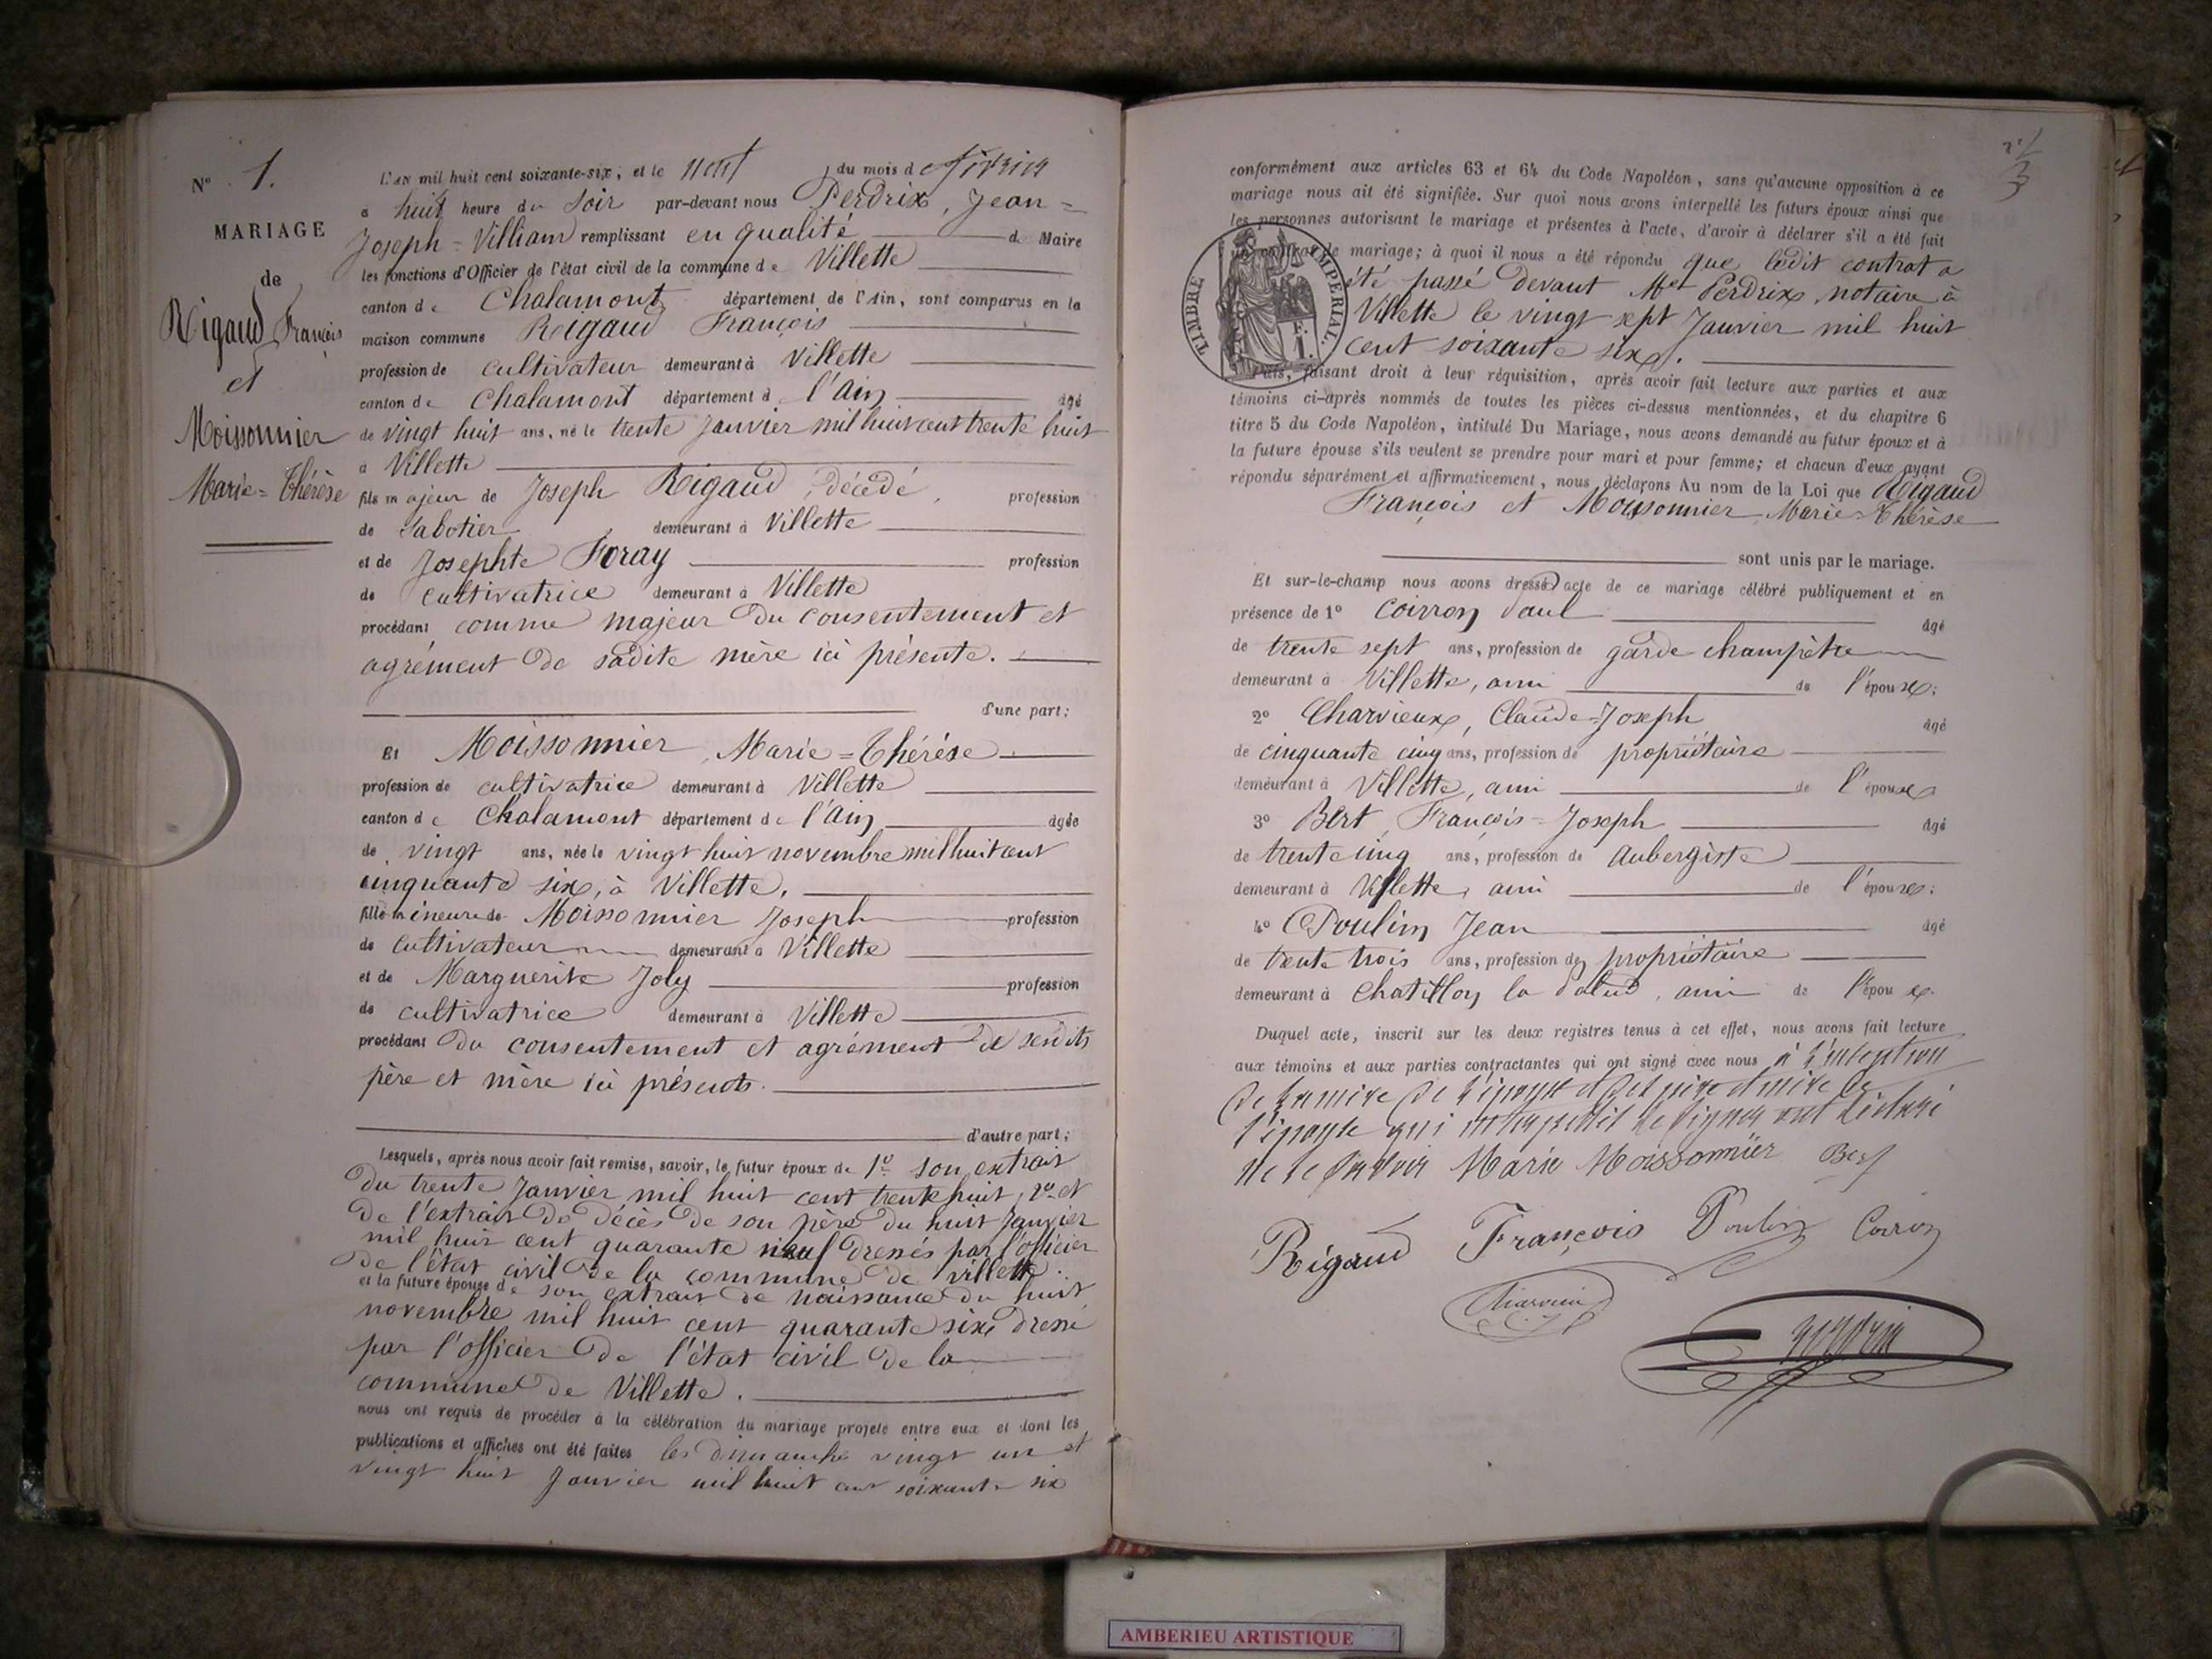 N° 1.
MARIAGE
de
Rigaud François
et
Moissonnier
Marie=Thérèse
L'AN mil huit cent soixante-six, et le neuf du mois de février
à huit heure du soir par-devant nous Perdrix, Jean=
Joseph=Villiam remplissant en qualité de Maire
les fonctions d'Officier de l'état civil de la commune de Villette
canton de Chalamont département de l'Ain, sont comparus en la
maison commune Rigaud François
profession de cultivateur demeurant à Villette
canton de Chalamont département d l'Ain âgé
de vingt huit ans, né le trente Janvier mil huit cent trente huit
à Villette
fils majeur de Joseph Rigaud, décédé, profession
de Sabotier demeurant à Villette
et de Josephte Foray profession
de cultivatrice demeurant à Villette
procédant comme majeur du consentement et
agrément de sadite mère ici présente.
d'une part;
Et Moissonnier, Marie=Thérèse
profession de cultivatrice demeurant à Villette
canton de Chalamont département de l'Ain âgée
de vingt ans, née le vingt huit novembre mil huit cent
cinquante six, à Villette.
fille mineure de Moissonnier Joseph profession
de cultivateur demeurant à Villette
et de Marguerite Joly profession
de cultivatrice demeurant à Villette
procédant du consentement et agrément de sesdits
père et mère ici présents.
d'autre part;
Lesquels, après nous avoir fait remise, savoir, le futur époux de 1° son extrait
du trente Janvier mil huit cent trente huit, 2° et
de l'extrait de décès de son père du huit Janvier
mil huit cent quarante neuf dressés par l'officier
de l'état civil de la commune de Villette
et la future épouse de son extrait de naissance du huit
novembre mil huit cent quarante six dressé
par l'officier de l'état civil de la
commune de Villette.
nous ont requis de procéder à la célébration du mariage projeté entre eux et dont les
publications et affiches ont été faites les dimanche vingt un et
vingt huit Janvier mil huit cent soixante six
conformément aux articles 63 et 64 du Code Napoléon, sans qu'aucune opposition à ce
mariage nous ait été signifiée. Sur quoi nous avons interpellé les futurs époux ainsi que
les personnes autorisant le mariage et présentes à l'acte, d'avoir à déclarer s'il a été fait
un contrat de mariage; à quoi il nous a été répondu que ledit contrat a
été passé devant Met Perdrix, notaire à
Villette le vingt sept Janvier mil huit
cent soixante six.
TIMBRE IMPERIAL.
E.
I.
Puis, faisant droit à leur réquisition, après avoir fait lecture aux parties et aux
témoins ci-après nommés de toutes les pièces ci-dessus mentionnées, et du chapitre 6
titre 5 du Code Napoléon, intitulé Du Mariage, nous avons demandé au futur époux et à
la future épouse s'ils veulent se prendre pour mari et pour femme; et chacun d'eux ayant
répondu séparément et affirmativement, nous déclarons Au nom de la Loi que Rigaud
François et Moissonnier Marie=Thérèse
sont unis par le mariage.
Et sur-le-champ nous avons dressé acte de ce mariage célébré publiquement et en
présence de 1° Coirron Paul âgé
de trente sept ans, profession de garde champêtre
demeurant à Villette, ami de l'époux;
2° Charvieux, Claude=Joseph âgé
de cinquante cinq ans, profession de propriétaire
demeurant à Villette, ami de l'époux
3° Bert, François=Joseph âgé
de trente cinq ans, profession de Aubergiste
demeurant à Villette, ami de l'époux;
4° Poulin Jean âgé
de trente trois ans, profession de propriétaire
demeurant à Chatillon la palud, ami de l'époux.
Duquel acte, inscrit sur les deux registres tenus à cet effet, nous avons fait lecture
aux témoins et aux parties contractantes qui ont signé avec nous à l'exception
de la mère de l'époux et des père et mère de
l'épouse qui interpellés de signer ont déclaré
ne le savoir Marie Moissonnier Bert
Rigaud François Poulin Coirron
Charvieux
Perdrix
AMBERIEU ARTISTIQUE